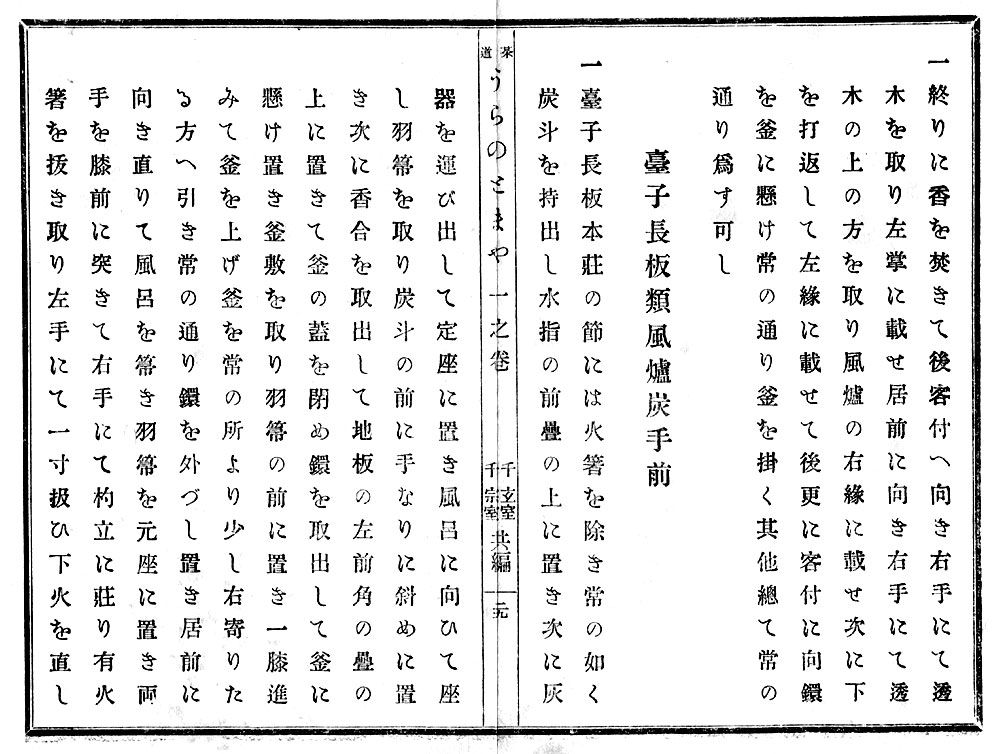 一終りに香を焚きて後客付へ向き右手にて透
木を取り左掌に載せ居前に向き右手にて透
木の上の方を取り風爐の右緣に載せ次に下
を打返して左緣に載せて後更に客付に向鐶
を釜に懸け常の通り釜を掛く其他總て常の
通り爲す可し
臺子長板類風爐炭手前
一臺子長板本莊の節には火箸を除き常の如く
炭斗を持出し水指の前疊の上に置き次に灰
茶道
うらのとまや 一之卷
千玄室
千宗室
共編
元
器を運び出して定座に置き風呂に向ひて座
し羽箒を取り炭斗の前に手なりに斜めに置
き次に香合を取出して地板の左前角の疊の
上に置きて釜の蓋を閉め鐶を取出して釜に
懸け置き釜敷を取り羽箒の前に置き一膝進
みて釜を上げ釜を常の所より少し右寄りた
る方へ引き常の通り鐶を外づし置き居前に
向き直りて風呂を箒き羽箒を元座に置き両
手を膝前に突きて右手にて杓立に莊り有火
箸を拔き取り左手にて一寸扱ひ下火を直し